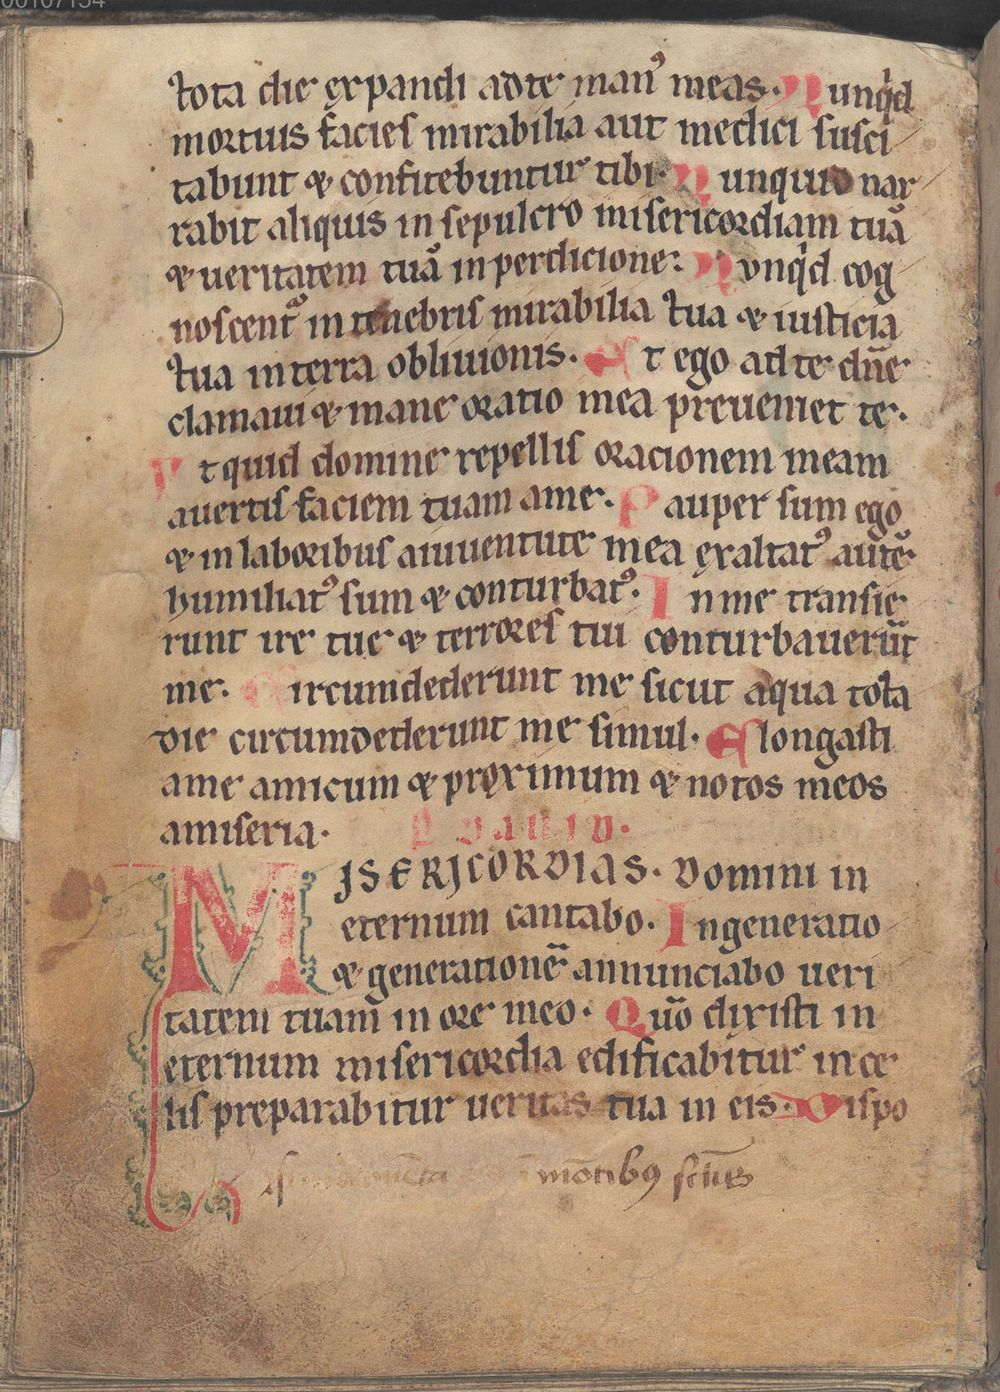 00107154
tota die expandi adte man᾽ meas. Nunqͥd
mortuis facies mirabilia aut medici susci
tabunt & confitebuntur tibi. Nunquid nar
rabit aliquis in sepulcro misericordiam tuā
& ueritatem tuā in perdicione. Nvnqͥd cog
noscentᷓ in tenebris mirabilia tua & iusticia
tua in terra obliuionis. Et ego ad te dn̄e
clamaui & mane oratio mea preueniet te.
Vt quid domine repellis oracionem meam
auertis faciem tuam ame. Pauper sum ego
& in laboribus aiuuentute mea exaltat᾽ autē
humiliat᾽ sum & conturbat᾽. In me transie
runt ire tue & terrores tui conturbauerūt
me. Circumdederunt me sicut aqua tota
die circumdederunt me simul. Elongasti
ame amicum & proximum & notos meos
amiseria.
MISERICORDIAS. Domini in
eternum cantabo. In generatio
& generationē annunciabo ueri
tatem tuam in ore meo. Quō dixisti in
eternum misericordia edificabitur in ce
lis preparabitur ueritas tua in eis. Dispo
mōtibꝫ sctīs